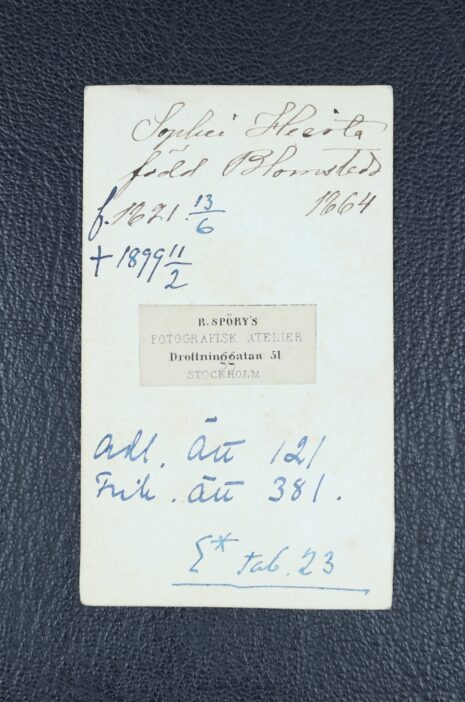 Sophie Hierta
född Blomstedt
f. 1821. 13/6 1864
† 1899 11/2
R. SPÖRY'S
FOTOGRAFISK ATELIER
Drottninggatan 51
55
STOCKHOLM
adl. Ätt 121
Frih. ätt 381.
* tab. 23